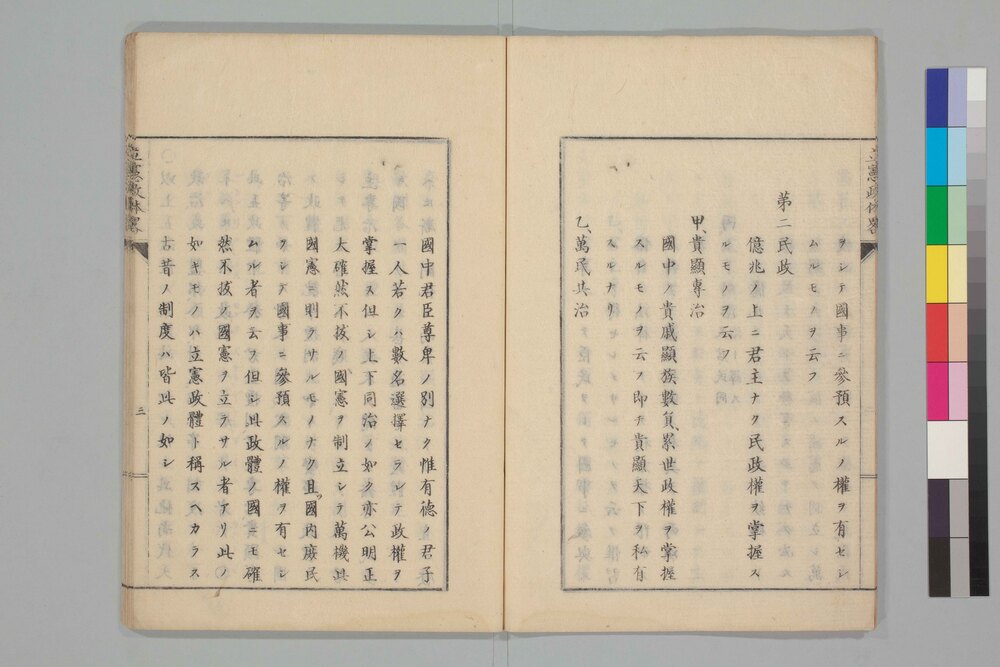 立憲政体畧
ヲシテ國事ニ參預スルノ權ヲ有セシ
ムルモノヲ云フ
第二民政
億兆ノ上ニ君主ナク民政權ヲ掌握ス
ルモノヲ云フ
甲、貴顯專治
國中ノ貴戚顯族數員、累世政權ヲ掌握
スルモノヲ云フ即チ貴顯天下ヲ私有
スルナリ
乙、萬民共治
國中君臣尊卑ノ別ナク惟有德ノ君子
一人若クハ數名選擇セラレテ政權ヲ
掌握ス但シ上下同治ノ如ク亦公明正
大確然不拔ノ國憲ヲ制立シテ萬機此
國憲ニ則ラサルモノナク且國内庶民
ヲシテ國事ニ參預スルノ權ヲ有セシ
ムル者ヲ云フ但シ此政體ノ國ニモ確
然不拔ノ國憲ヲ立テサル者アリ此ノ
如キモノハ立憲政體ト稱スヘカラス
古昔ノ制度ハ皆此ノ如シ
立憲政体畧
三